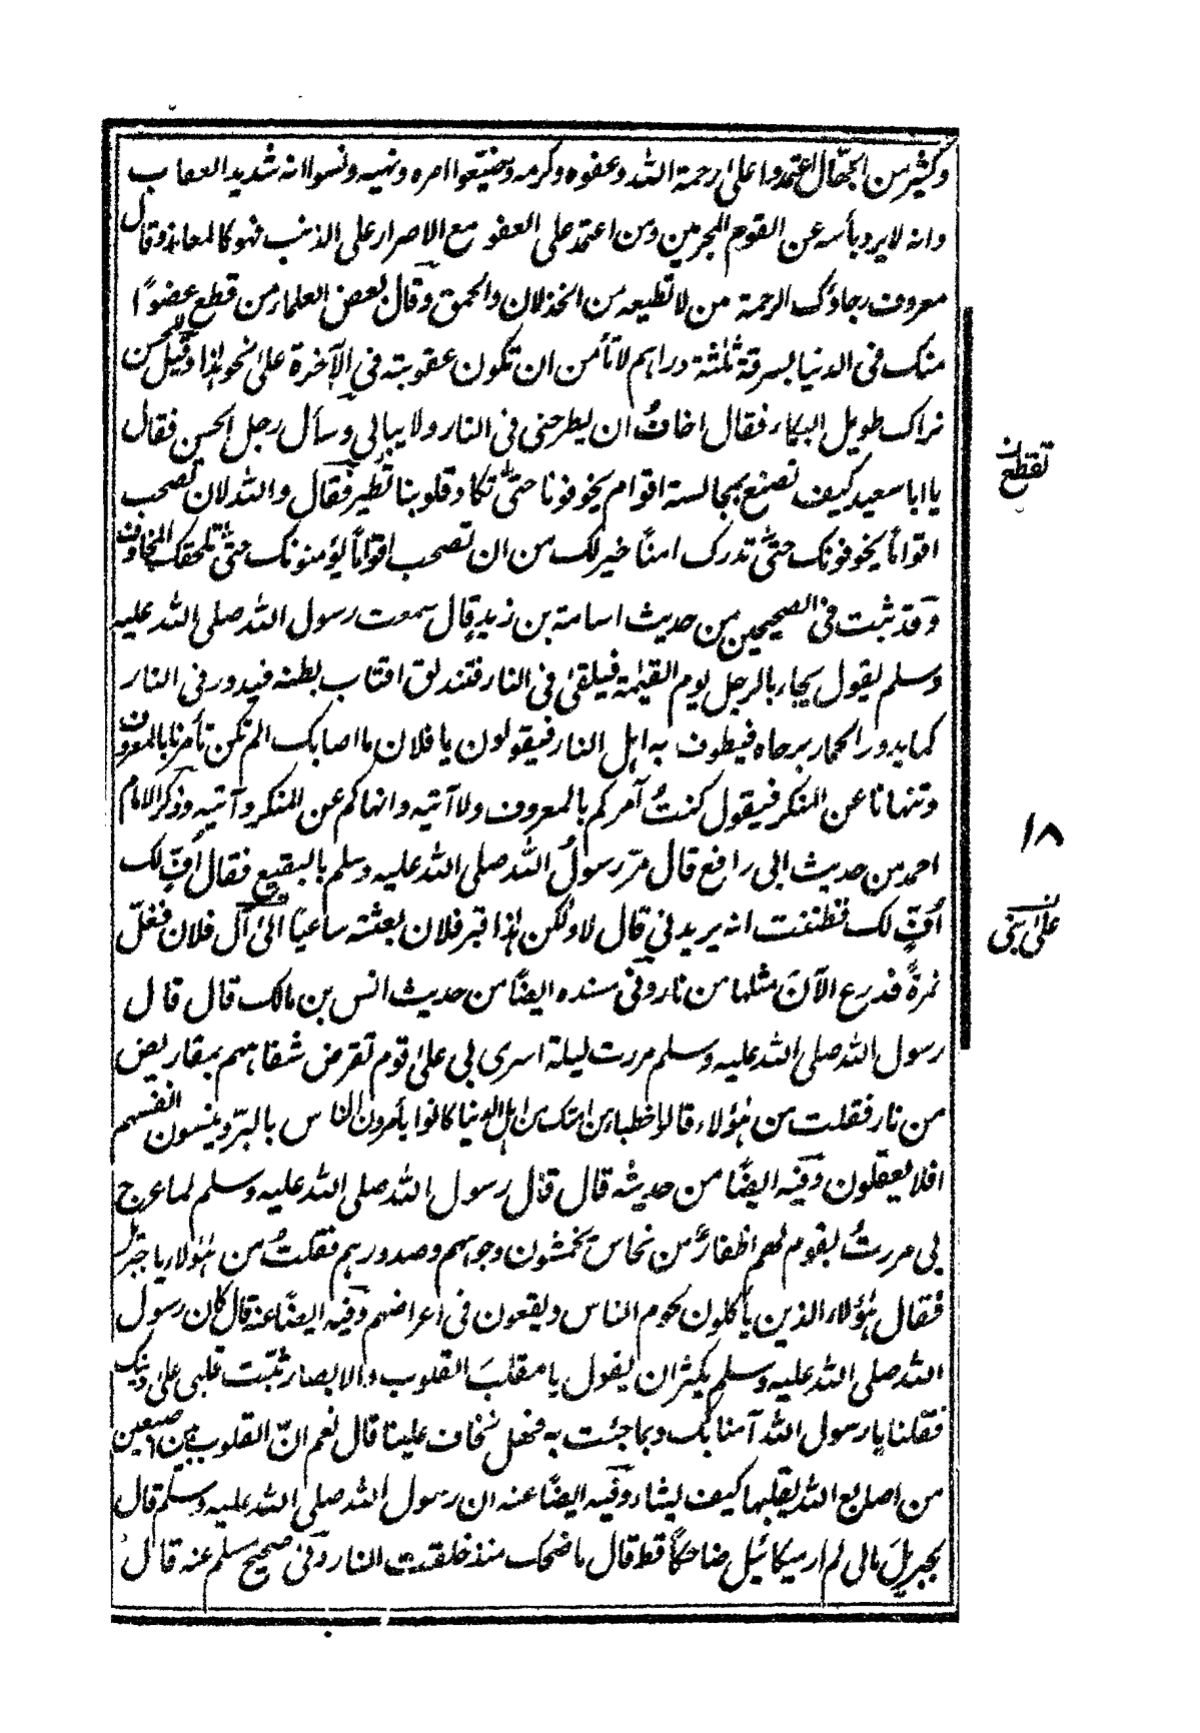 وكثير من الجهّال اعتمدوا على رحمة الله وعفوه وكرمه وضيّعوا امره ونهيه ونسوا انه شديد العقاب
وانه لا يرد بأسه عن القوم المجرمين ومن اعتمد على العفو مع الاصرار على الذنب فهو كالمعاند وقال
معروف رجاؤك الرحمة من لا تطيعه من الخذلان والحمق وقال بعض العلماء من قطع عضوًا
منك فى الدنيا بسرقة ثلثة دراهم لا تأمن ان تكون عقوبته في الآخرة على نحو هذا وقيل للحسن
نراك طويل البكاء فقال اخافُ ان يطرحنى فى النار ولا يبالى وسأل رجل الحسن فقال
يا ابا سعيد كيف نصنع بمجالسة اقوام يخوفونا حتى تكاد قلوبنا تطير فقال والله لان تصحب
اقوامًا يخوفونك حتى تدرك امنًا خير لك من ان تصحب اقوامًا يؤمنونك حتى تلحقك المخاوف
وقد ثبت فى الصحيحين من حديث اسامة بن زيد قال سمعت رسول الله صلى الله عليه
وسلم يقول يجاء بالرجل يوم القيٰمة فيلقى فى النار فتندلق اقتاب بطنه فيدور فى النار
كما يدور الحمار برحاه فيطوف به اهل النار فيقولون يا فلان ما اصابك الم تكن تأمرنا بالمعروف
وتنهانا عن المنكر فيقول كنتُ آمركم بالمعروف ولا آتيه وانهاكم عن المنكر وآتيه وذكر الامام
احمد من حديث ابى رافع قال مرّ رسولُ الله صلى الله عليه وسلم بالبقيع فقال اُفٍّ لك
اُفٍّ لك فظننت انه يريدني قال لا ولكن هذا قبر فلان بعثته ساعيًا الى آل فلان فغلّ
نمرةً فدرع الآنَ مثلها من نار وفى مسنده ايضًا من حديث انس بن مالك قال قال
رسول الله صلى الله عليه وسلم مررت ليلة اسرى بى على قوم تقرض شفاههم بمقاريض
من نار فقلت من هؤلاء قالوا خطباء من امتك من اهل الدنيا كانوا يأمرون الناس بالبرّ وينسون انفسهم
افلا يعقلون وفيه ايضًا من حديثه قال قال رسول الله صلى الله عليه وسلم لما عرج
بى مررتُ بقوم لهم اظفارٌ من نحاس يخمشون وجوههم وصدورهم فقلتُ من هؤلاء يا جبريل
فقال هؤلاء الذين يأكلون لحوم الناس ويقعون فى اعراضهم وفيه ايضًا عنه قال كان رسول
الله صلى الله عليه وسلم يكثر ان يقول يا مقلبَ القلوب والابصار ثبّت قلبى على دينك
فقلنا يا رسول الله آمنا بك وبما جئت به فهل تخاف علينا قال نعم انّ القلوب بين اصبعين
من اصابع الله يقلبها كيف يشاء وفيه ايضًا عنه ان رسول الله صلى الله عليه وسلم قال
لجبريلَ مالى لم ار ميكائيل ضاحكًا قط قال ما ضحك منذ خلقت النار وفى صحيح مسلم عنه قال
تقطع
١٨
على بنى